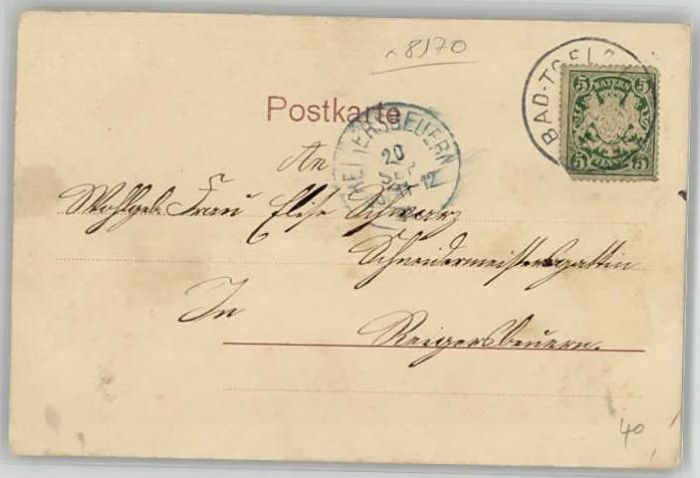 8170
BAD-TOELZ
5 BAYERN 5
5 PFENNIG 5
Postkarte
REITERSBEUERN
20
SEP
12
An
Wohlgeb. Frau Elise Schwarz
Schneidermeistersgattin
In
Reigersbeuern.
40